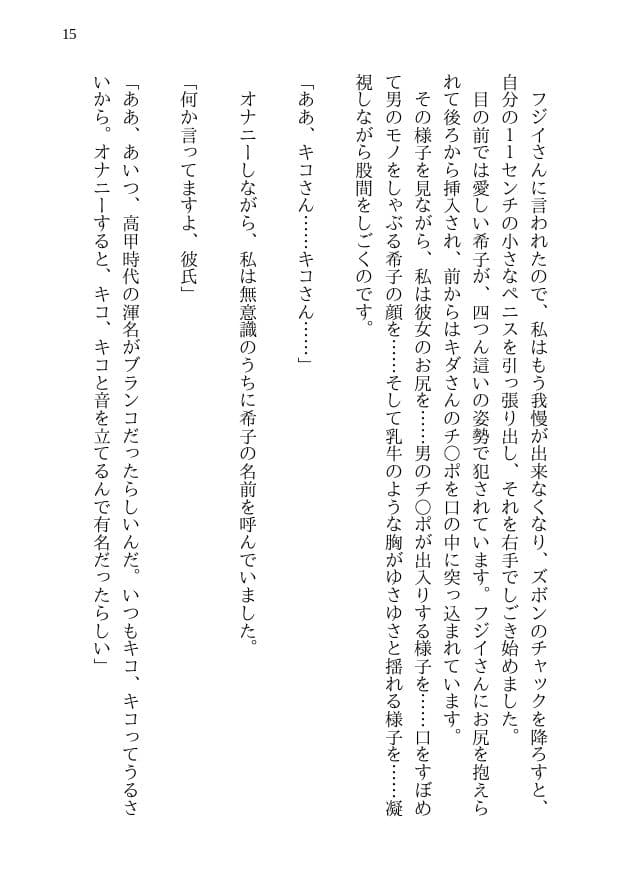 15
フジイさんに言われたので、私はもう我慢が出来なくなり、ズボンのチャックを降ろすと、
自分の１１センチの小さなペニスを引っ張り出し、それを右手でしごき始めました。
目の前では愛しい希子が、四つん這いの姿勢で犯されています。フジイさんにお尻を抱えら
れて後ろから挿入され、前からはキダさんのチ〇ポを口の中に突っ込まれています。
その様子を見ながら、私は彼女のお尻を……男のチ〇ポが出入りする様子を……口をすぼめ
て男のモノをしゃぶる希子の顔を……そして乳牛のような胸がゆさゆさと揺れる様子を……凝
視しながら股間をしごくのです。
「ああ、キコさん……キコさん……」
オナニーしながら、私は無意識のうちに希子の名前を呼んでいました。
「何か言ってますよ、彼氏」
「ああ、あいつ、高甲時代の渾名がブランコだったらしいんだ。いつもキコ、キコってうるさ
いから。オナニーすると、キコ、キコと音を立てるんで有名だったらしい」